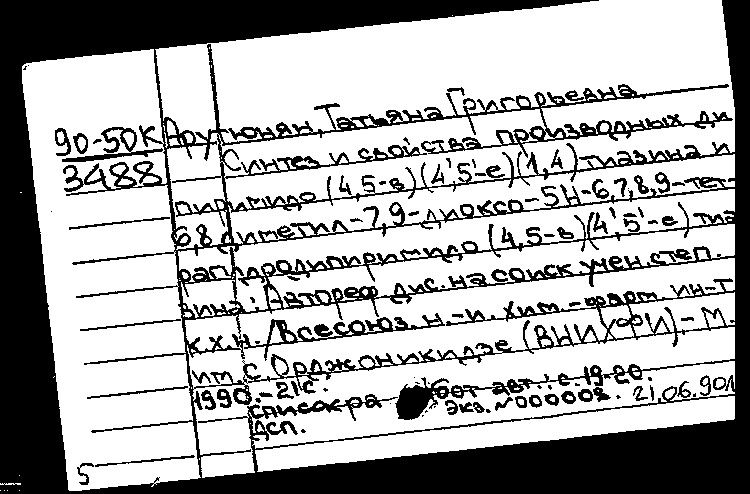 90-50К Арутюнян, Татьяна Григорьевна.
3488 Синтез и свойства производных ди
пиримидо (4,5-в)(4',5'-е)(1,4) тиазина и
6,8 диметил-7,9-диоксо-5Н-6,7,8,9-тет-
рагидродипиримидо (4,5-в)(4',5'-е) тиа
зина: Автореф. дис. на соиск. учен. степ.
к.х.н. /Всесоюз. н.-и. хим.-фарм. ин-т
им. С. Орджоникидзе (ВНИХФИ).- М.
1990.-21с.
Список ра бот авт.: с.19-20.
Экз. №000002. 21.06.90
ДСП.
5